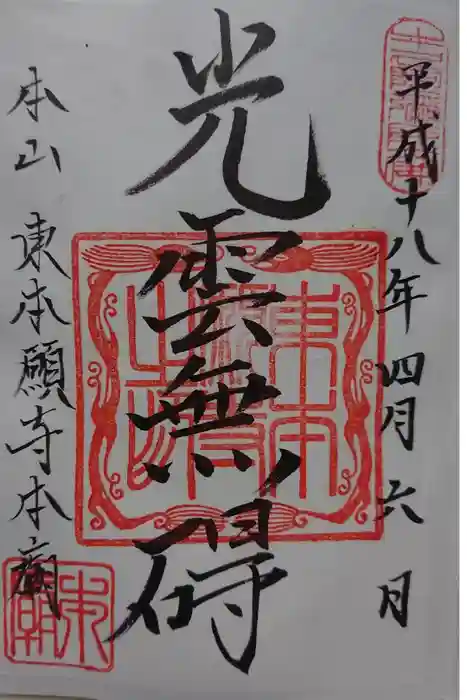 平成十八年四月六日
光雲無碍
本山 東本願寺本廟